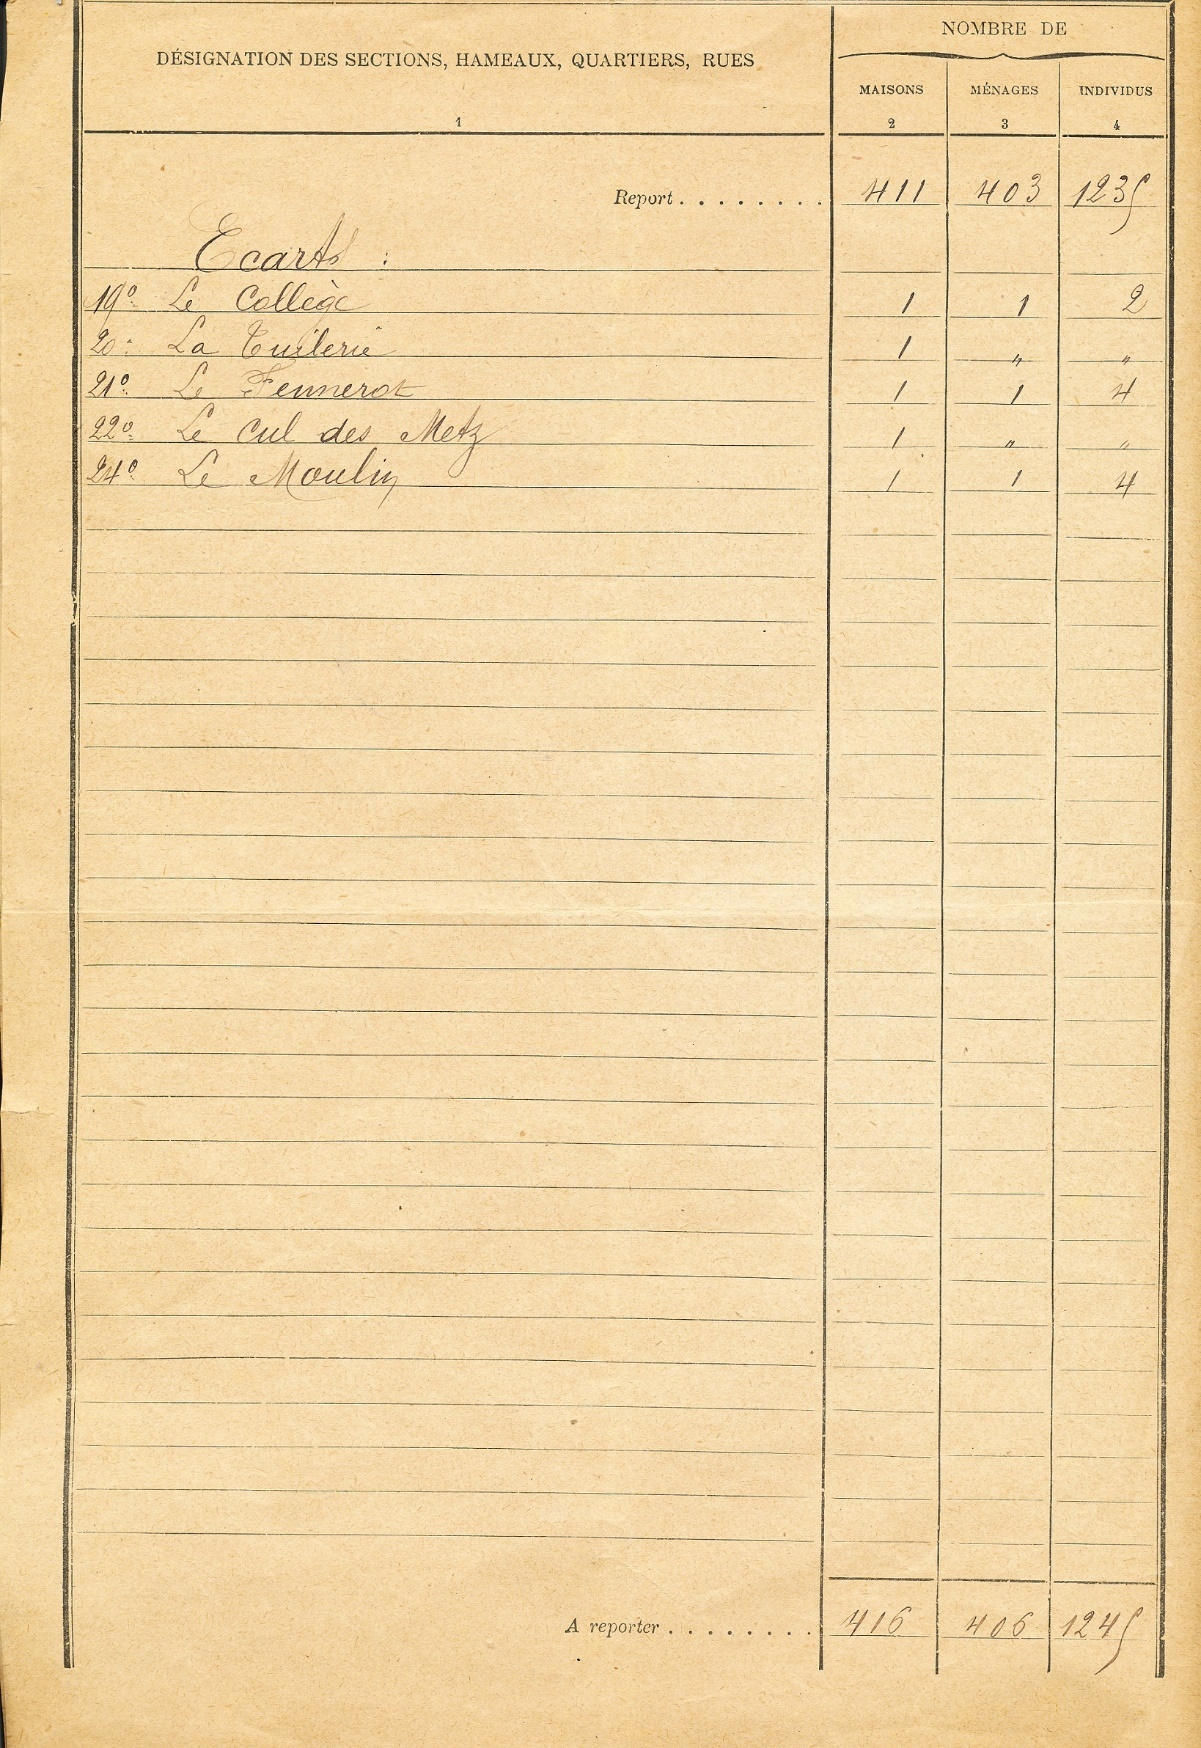 DÉSIGNATION DES SECTIONS, HAMEAUX, QUARTIERS, RUES
NOMBRE DE
MAISONS MÉNAGES INDIVIDUS
1 2 3 4
Report . . . . . . . . 411 403 1235
Ecarts :
19º Le Collège 1 1 2
20º La Tuilerie 1 " "
21º Le Fennerot 1 1 4
22º Le Cul des Metz 1 " "
24º Le Moulin 1 1 4
A reporter . . . . . . . . 416 406 1245